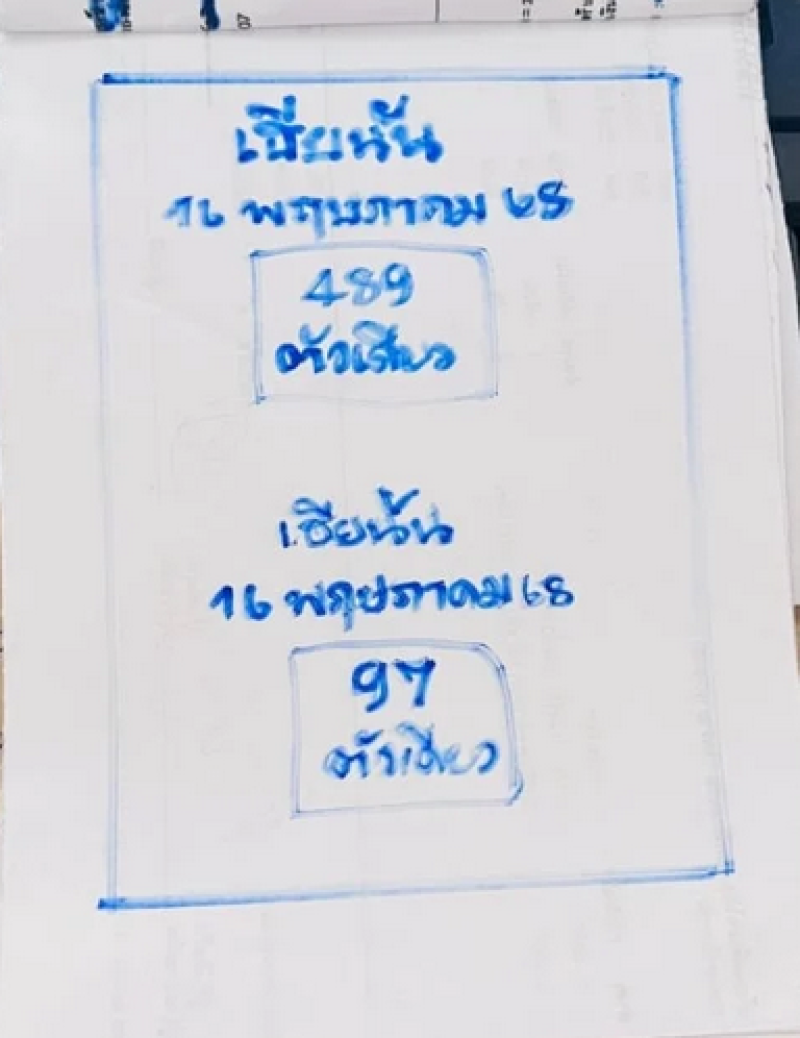 07
เฮียนั้น
16 พฤษภาคม 68
489
ตัวเดียว
เฮียนั้น
16 พฤษภาคม 68
97
ตัวเดียว